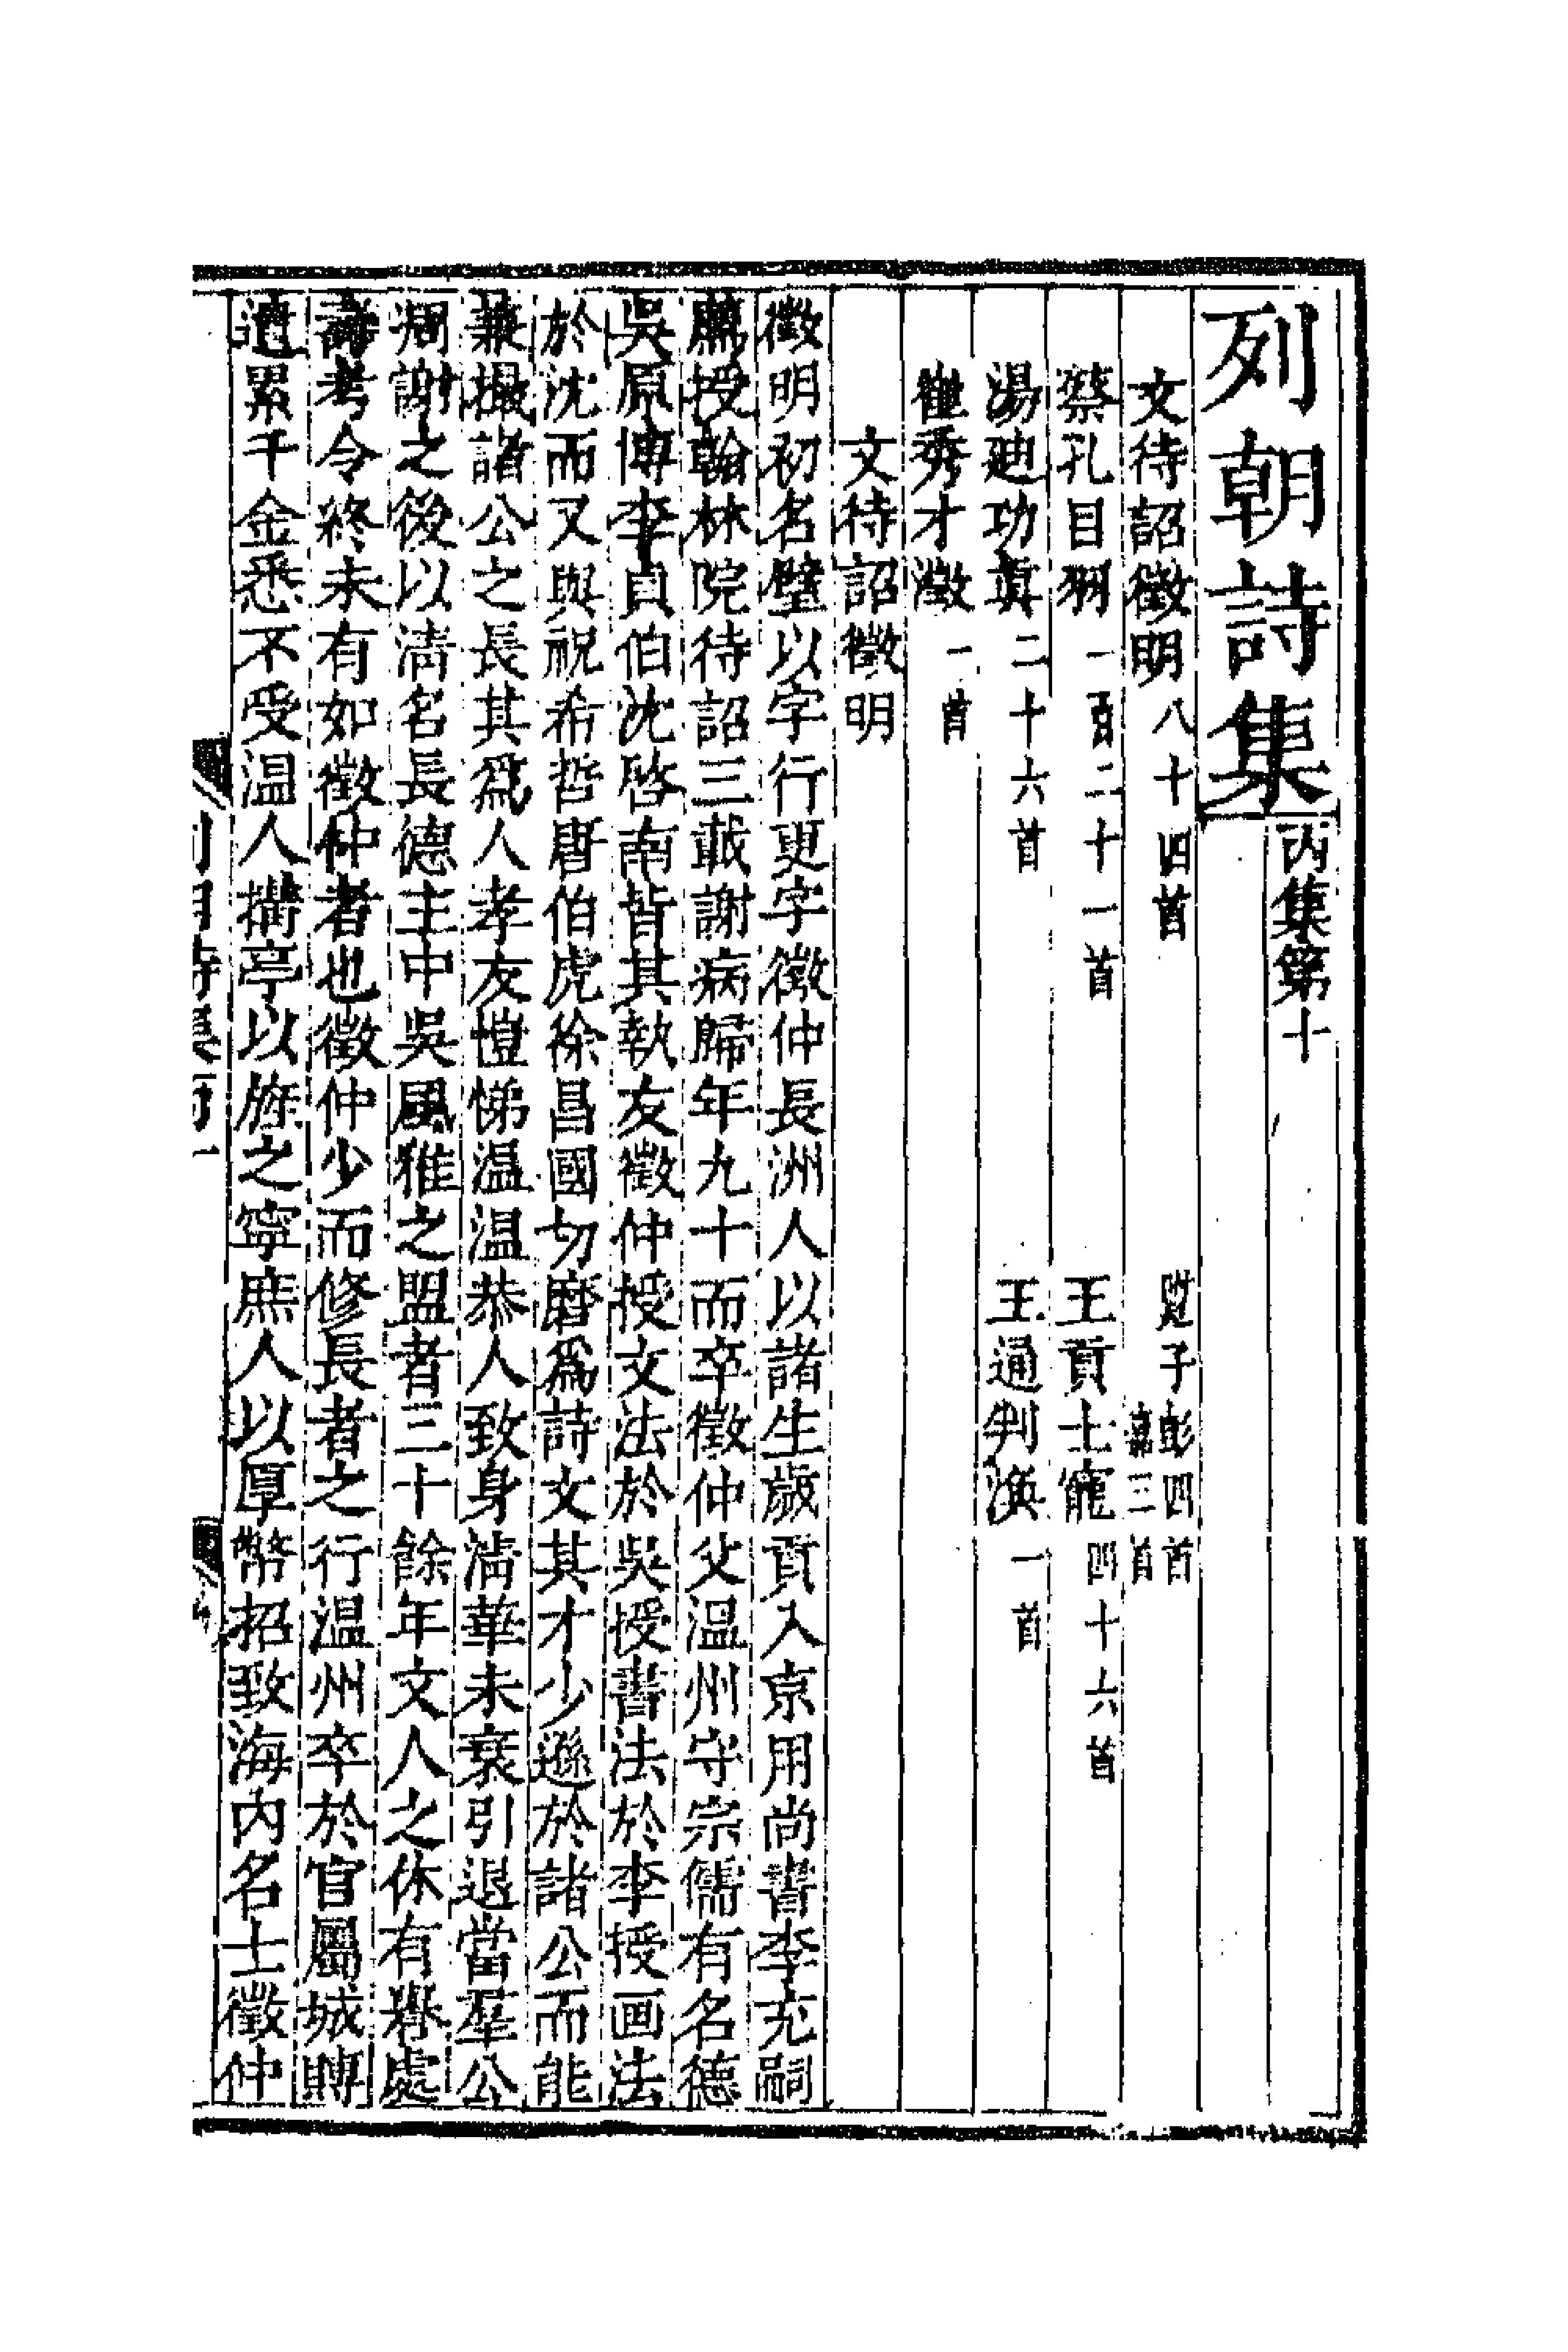 列朝詩集丙集第十
文待詔徵明八十四首　附見子彭四首嘉三首
蔡孔目羽一百二十一首　王貢士寵四十六首
湯迪功眞二十六首　王通判渙一首
崔秀才澂一首
文待詔徵明
徵明初名璧以字行更字徵仲長洲人以諸生歲貢入京用尚書李充嗣
薦授翰林院待詔三載謝病歸年九十而卒徵仲父溫州守宗儒有名德
吳原博李貞伯沈啓南皆其執友徵仲授文法於吳授書法於李授画法
於沈而又與祝希哲唐伯虎徐昌國切磨爲詩文其才少遜於諸公而能
兼撮諸公之長其爲人孝友愷悌温温恭人致身淸華未衰引退當羣公
凋謝之後以淸名長德主中吳風雅之盟者三十餘年文人之休有譽處
壽考令終未有如徵仲者也徵仲少而修長者之行温州卒於官屬城賻
遺累千金悉不受温人搆亭以旌之寧庶人以厚幣招致海內名士徵仲